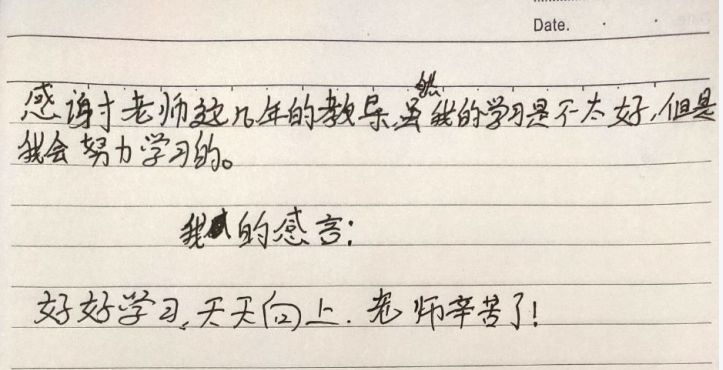 Date.
感谢老师这几年的教导虽然我的学习是不太好,但是
我会努力学习的。
我的感言:
好好学习,天天向上.老师辛苦了!